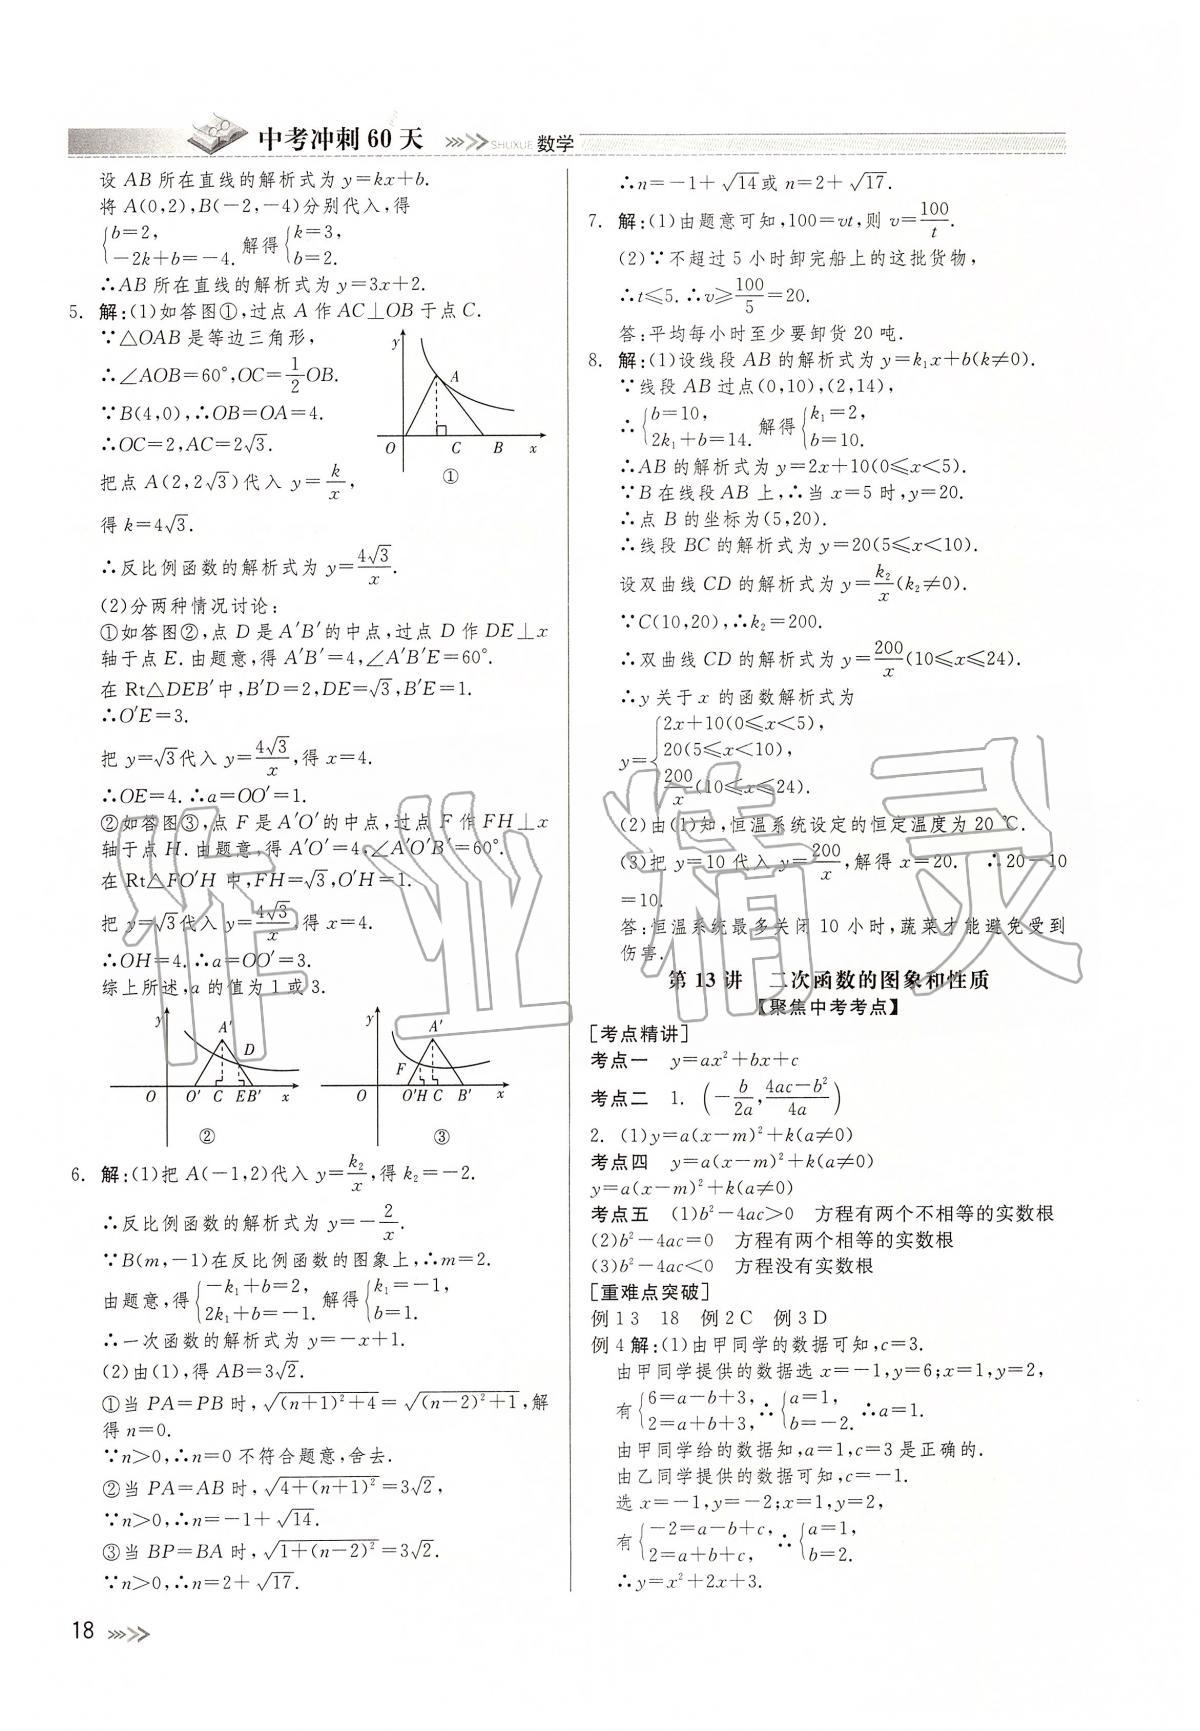 中考冲刺60天 SHUXUE 数学
设 AB 所在直线的解析式为 y=kx+b.
将 A(0,2),B(-2,-4)分别代入,得
{b=2, -2k+b=-4. 解得{k=3, b=2.
∴AB 所在直线的解析式为 y=3x+2.
5. 解:(1)如答图①,过点 A 作 AC⊥OB 于点 C.
∵△OAB 是等边三角形,
∴∠AOB=60°,OC=1/2OB.
∵B(4,0),∴OB=OA=4.
∴OC=2,AC=2√3.
把点 A(2,2√3)代入 y=k/x,
得 k=4√3.
y A O C B x
①
∴反比例函数的解析式为 y=4√3/x.
(2)分两种情况讨论:
①如答图②,点 D 是 A′B′的中点,过点 D 作 DE⊥x
轴于点 E.由题意,得 A′B′=4,∠A′B′E=60°.
在 Rt△DEB′中,B′D=2,DE=√3,B′E=1.
∴O′E=3.
把 y=√3代入 y=4√3/x,得 x=4.
∴OE=4.∴a=OO′=1.
②如答图③,点 F 是 A′O′的中点,过点 F 作 FH⊥x
轴于点 H.由题意,得 A′O′=4,∠A′O′B′=60°.
在 Rt△FO′H 中,FH=√3,O′H=1.
把 y=√3代入 y=4√3/x,得 x=4.
∴OH=4.∴a=OO′=3.
综上所述,a 的值为 1 或 3.
y A′ D O O′ C E B′ x
②
y A′ F O O′ H C B′ x
③
6. 解:(1)把 A(-1,2)代入 y=k₂/x,得 k₂=-2.
∴反比例函数的解析式为 y=-2/x.
∵B(m,-1)在反比例函数的图象上,∴m=2.
由题意,得{-k₁+b=2, 2k₁+b=-1. 解得{k₁=-1, b=1.
∴一次函数的解析式为 y=-x+1.
(2)由(1),得 AB=3√2.
①当 PA=PB 时,√((n+1)²+4)=√((n-2)²+1),解
得 n=0.
∵n>0,∴n=0 不符合题意,舍去.
②当 PA=AB 时,√(4+(n+1)²)=3√2,
∵n>0,∴n=-1+√14.
③当 BP=BA 时,√(1+(n-2)²)=3√2.
∵n>0,∴n=2+√17.
18
∴n=-1+√14或 n=2+√17.
7. 解:(1)由题意可知,100=vt,则 v=100/t.
(2)∵不超过 5 小时卸完船上的这批货物,
∴t≤5.∴v≥100/5=20.
答:平均每小时至少要卸货 20 吨.
8. 解:(1)设线段 AB 的解析式为 y=k₁x+b(k≠0).
∵线段 AB 过点(0,10),(2,14),
∴{b=10, 2k₁+b=14. 解得{k₁=2, b=10.
∴AB 的解析式为 y=2x+10(0≤x<5).
∵B 在线段 AB 上,∴当 x=5 时,y=20.
∴点 B 的坐标为(5,20).
∴线段 BC 的解析式为 y=20(5≤x<10).
设双曲线 CD 的解析式为 y=k₂/x(k₂≠0).
∵C(10,20),∴k₂=200.
∴双曲线 CD 的解析式为 y=200/x(10≤x≤24).
∴y 关于 x 的函数解析式为
y={2x+10(0≤x<5), 20(5≤x<10), 200/x(10≤x≤24).
(2)由(1)知,恒温系统设定的恒定温度为 20 ℃.
(3)把 y=10 代入 y=200/x,解得 x=20. ∴20-10
=10.
答:恒温系统最多关闭 10 小时,蔬菜才能避免受到
伤害.
第 13 讲 二次函数的图象和性质
【聚焦中考考点】
[考点精讲]
考点一 y=ax²+bx+c
考点二 1. (-b/2a,(4ac-b²)/4a)
2. (1)y=a(x-m)²+k(a≠0)
考点四 y=a(x-m)²+k(a≠0)
y=a(x-m)²+k(a≠0)
考点五 (1)b²-4ac>0 方程有两个不相等的实数根
(2)b²-4ac=0 方程有两个相等的实数根
(3)b²-4ac<0 方程没有实数根
[重难点突破]
例 1 3 18 例 2 C 例 3 D
例 4 解:(1)由甲同学的数据可知,c=3.
由甲同学提供的数据选 x=-1,y=6;x=1,y=2,
有{6=a-b+3, 2=a+b+3,∴{a=1, b=-2.∴a=1.
由甲同学给的数据知,a=1,c=3 是正确的.
由乙同学提供的数据可知,c=-1.
选 x=-1,y=-2;x=1,y=2,
有{-2=a-b+c, 2=a+b+c,∴{a=1, b=2.
∴y=x²+2x+3.
作业精灵